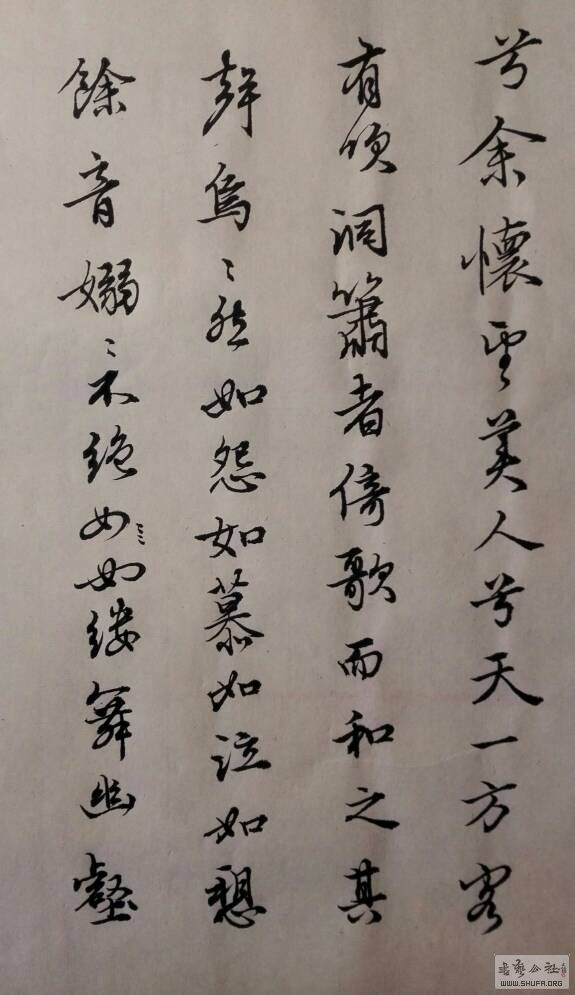 兮余懷望美人兮天一方客
有吹洞簫者倚歌而和之其
聲烏々然如怨如慕如泣如愬
餘音嫋々不絕女如縷舞幽壑
书艺公社
WWW.SHUFA.ORG